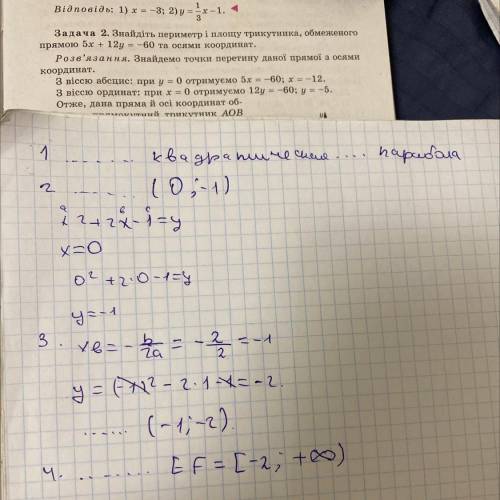 Відповідь: 1) x = −3; 2) y = 1/3 x − 1.
Задача 2. Знайдіть периметр і площу трикутника, обмеженого
прямою 5x + 12y = −60 та осями координат.
Розв'язання. Знайдемо точки перетину даної прямої з осями
координат.
З віссю абсцис: при y = 0 отримуємо 5x = −60; x = −12.
З віссю ординат: при x = 0 отримуємо 12y = −60; y = −5.
Отже, дана пряма й осі координат об-
прямокутний трикутник AOB
1 ....... квадратическая .... парабола
2 ....... (0; -1)
a b c
x²+2x-1=y
x=0
0²+2·0-1=y
y=-1
3. xв = - b/2a = - 2/2 = -1
y = (-1)² - 2·1 - 1 = -2.
...... (-1; -2).
4. ........ E F = [-2; +∞)